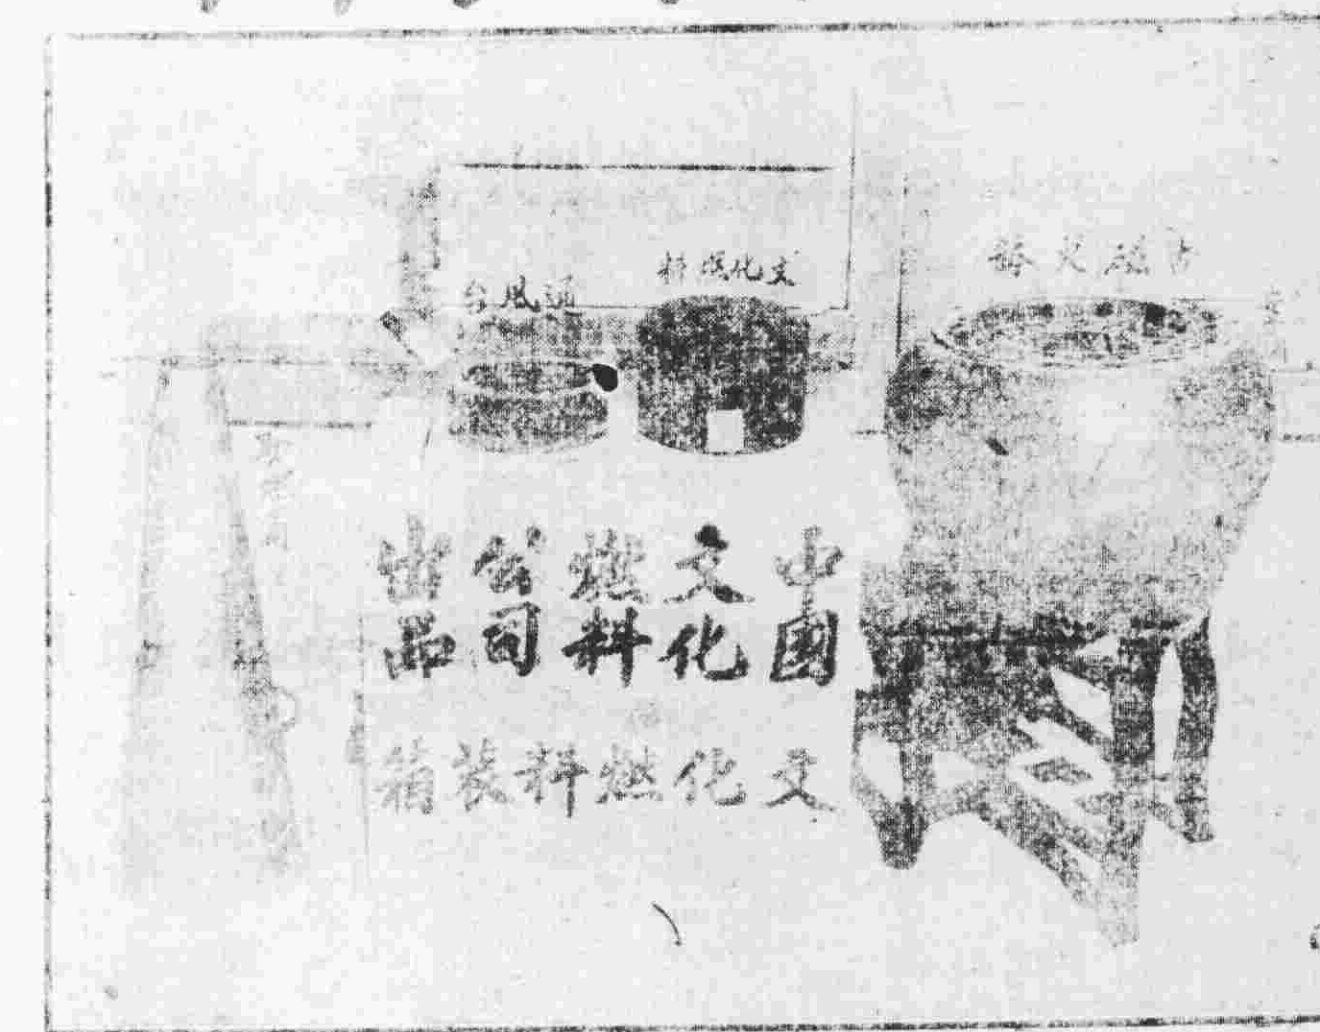 文化燃料
通風台
中國文化燃料公司出品
文化燃料裝箱